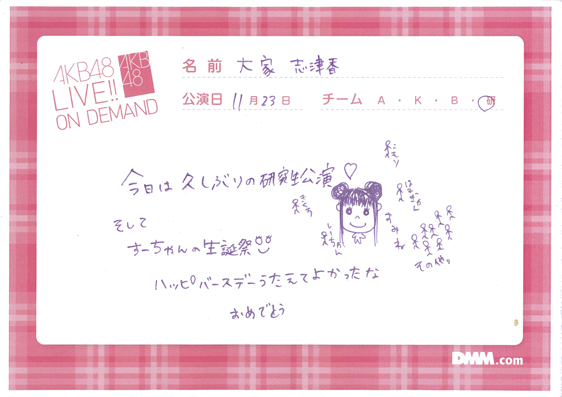 AKB48
LIVE!!
ON DEMAND
AKB
48
名前 大家 志津香
公演日 11月23日 チーム A・K・B・研
今日は久しぶりの研究生公演♡
そして
すーちゃんの生誕祭
ハッピバースデーうたえてよかったな
おめでとう
すみれ
その他
DMM.com